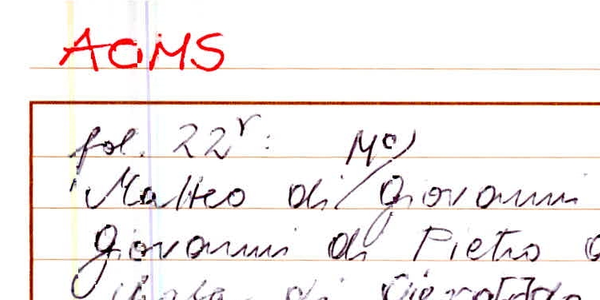 AOMS
fol. 22r: Mo)
'Matteo di Giovanni
Giovanni di Pietro
di